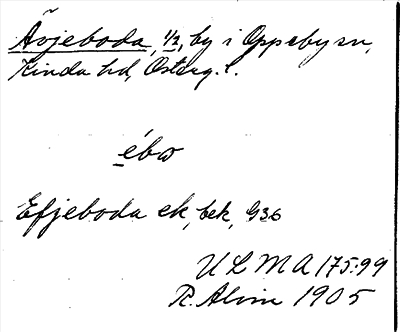 Åvjeboda, 1/2, by i Oppeby sn,
Kinda hd, Österg. l.
ébω
Efjeboda ek, bek, G36
ULMA 175:99
R. Alvin 1905